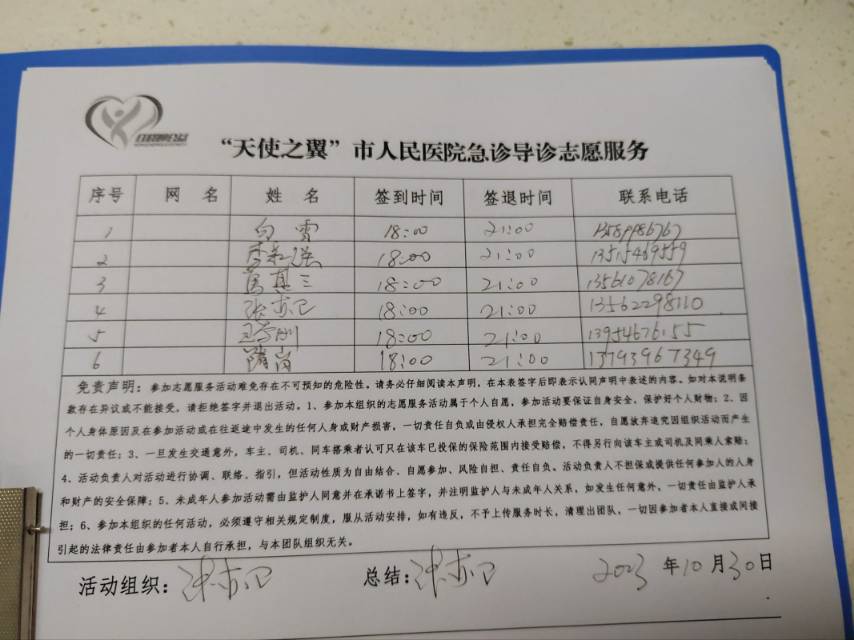 “天使之翼”市人民医院急诊导诊志愿服务
序号 网 名 姓 名 签到时间 签退时间 联系电话
1 白雪 18:00 21:00 13589986767
2 18:00 21:00 13515469559
3 18:00 21:00 13561078167
4 张亦卫 18:00 21:00 13562298110
5 18:00 21:00 13954676155
6 隋岗 18:00 21:00 13793967349
免责声明：参加志愿服务活动难免存在不可预知的危险性。请务必仔细阅读本声明，在本表签字后即表示认同声明中表述的内容。如对本说明条
款存在异议或不能接受，请拒绝签字并退出活动。1、参加本组织的志愿服务活动属于个人自愿，参加活动要保证自身安全、保护好个人财物；2、因
个人身体原因及在参加活动或在往返途中发生的任何人身或财产损害，一切责任自负或由侵权人承担完全赔偿责任，自愿放弃追究因组织活动而产生
的一切责任；3、一旦发生交通意外，车主、司机、同车搭乘者认可只在该车已投保的保险范围内接受赔偿，不得另行向该车主或司机及同乘人索赔；
4、活动负责人对活动进行协调、联络、指引，但活动性质为自由结合、自愿参加、风险自担、责任自负。活动负责人不担保或提供任何参加人的人身
和财产的安全保障；5、未成年人参加活动需由监护人同意并在承诺书上签字，并注明监护人与未成年人关系，如发生任何意外，一切责任由监护人承
担；6、参加本组织的任何活动，必须遵守相关规定制度，服从活动安排，如有违反，不予上传服务时长，清理出团队，一切因参加者本人直接或间接
引起的法律责任由参加者本人自行承担，与本团队组织无关。
活动组织：张亦卫 总结：张亦卫 2023年10月30日